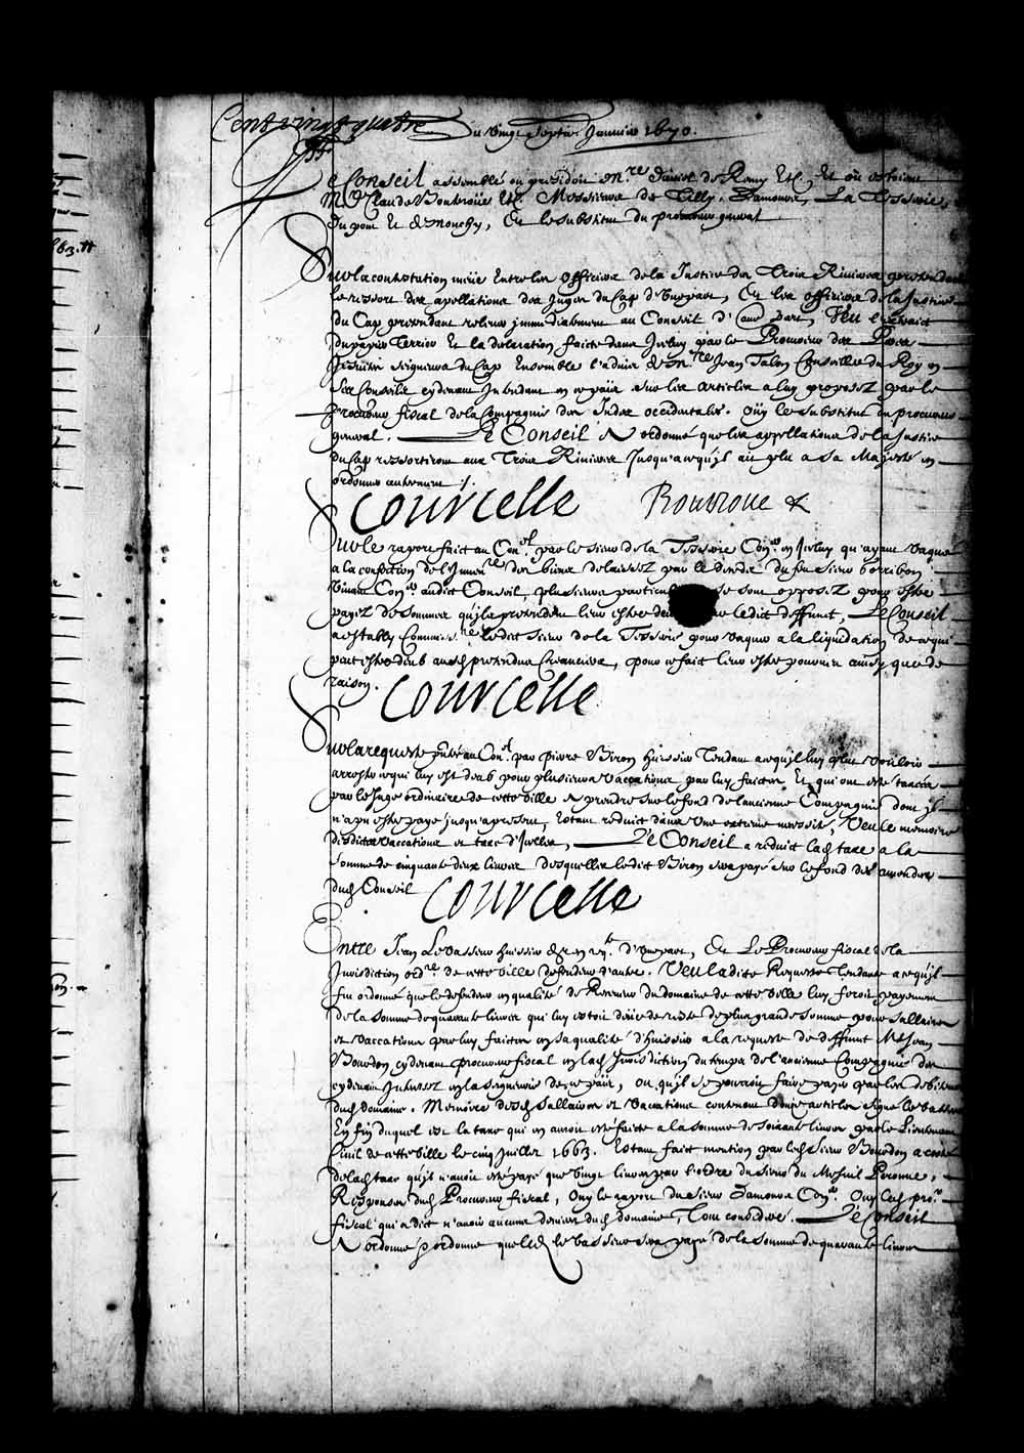 Cent vingt quatre
Du vingt septie. Janvier 1670.
Le Conseil assemblé ou presidoit Mre. Daniel de Remy &c. Et où estoient
Me Claude Boutroüe &c. Messieurs de Tilly, Damours, La Tesserie,
Dupont et de Mouchy, Et le substitut du procureur general
Sur la contestation meüe Entre les Officiers de la Justice des Trois Rivieres pretendant
le ressort des apellations des Juges du Cap d'Iceparts, Et les officiers de la Justice
du Cap pretendant relever immediatement au Conseil d' part, Veu l'extraict
du papier Terrier Et la declaration faicte dans Iceluy par le Procureur des Peres
Jesuites seigneurs du Cap Ensemble l'advis de Mre Jean Talon Conseiller du Roy en
Ses Conseils cydevant Intendant en ce païs sur les articles a luy proposez par le
Procureur fiscal de la Compagnie des Indes occidentales. Oüy le substitut du procureur
general. Le Conseil A ordonné que les appellations de la Justice
du Cap ressortiront aux Trois Rivieres Jusqu'a ce qu'il ait plu a Sa Majesté en
ordonner autrement ./.
Courcelle Boutroue
Sur le raport faict au Conel. par le sieur de la Tesserie Coner. en Iceluy qu'ayant vaqué
a la confection de l'Inventre des biens delaissez par le deceds du feu sieur
vivant Coner audict Conseil, plusieurs particul se sont opposez pour estre
payez de sommes qu'ils pretendent leur estre deu ledict deffunct, Le Conseil
a estably Commissre ledict sieur de la Tesserie pour vaquer a la liquidation de ce qui
peut estre deub ausdits pretendus Creanciers, pour ce faict leur estre pourveu ainsy que de
raison.
Courcelle
Sur la requeste pntée au Conel. par Pierre Biron huissier Tendant a ce qu'il luy plut vouloir
arrester ce qui luy est deub pour plusieurs vaccations par luy faictes Et qui ont esté taxées
par le Juge ordinaire de cette ville A prendre sur le fond de l'ancienne Compagnie dont il
n'a pu estre payé jusqu'a present, Estant reduit dans Une extreme necessité, Veu le memoire
desdittes vaccations et taxe d'Icelles, Le Conseil a reduit lad. taxe a la
somme de cinquante deux livres desquelles ledict Biron sera payé sur le fond des amendes
dud. Conseil
Courcelle
Entre Jean Levasseur huissier d'Unepart, Et Le Procureur fiscal de la
Jurisdiction ordre de cette ville defendeur d'autre. Veu ladite Requeste Tendante a ce qu'il
fut ordonné que le defendeur en qualité de Receveur du domaine de cette ville luy feroit payement
de la somme de quarante livres qui luy estoit deüe de reste de plus grande somme pour sallaires
et vaccations par luy faictes en sa qualité d'huissier a la requeste de deffunct Me Jean
Bourdon cydevant procureur fiscal en lad. Jurisdiction du temps de l'ancienne Compagnie des
cydevant Interessez en la seigneurie de ce païs, ou qu'il se pourroit faire payer par les debiteurs
dud. domaine. Memoire desd. sallaires et vaccations contenant douze articles signé le Vasseur
En fin duquel est la taxe qui en auroit esté faicte a la somme de soixante livres par le Lieutenant
Civil de cette ville le cinq Juillet 1663. Estant faict mention par led. sieur Bourdon a costé
de lad. taxe qu'il n'avoit esté payé que vingt livres par l'ordre du sieur du Mesnil Peronne,
Responses dud. Procureur fiscal, Ouy le raport du sieur Damours Coner. Ouy led. procr.
fiscal qui a dict n'avoir aucuns deniers dud. domaine, Tout consideré. Le Conseil
A ordonné & ordonne que led. le Vasseur sera payé de la somme de quarante livres